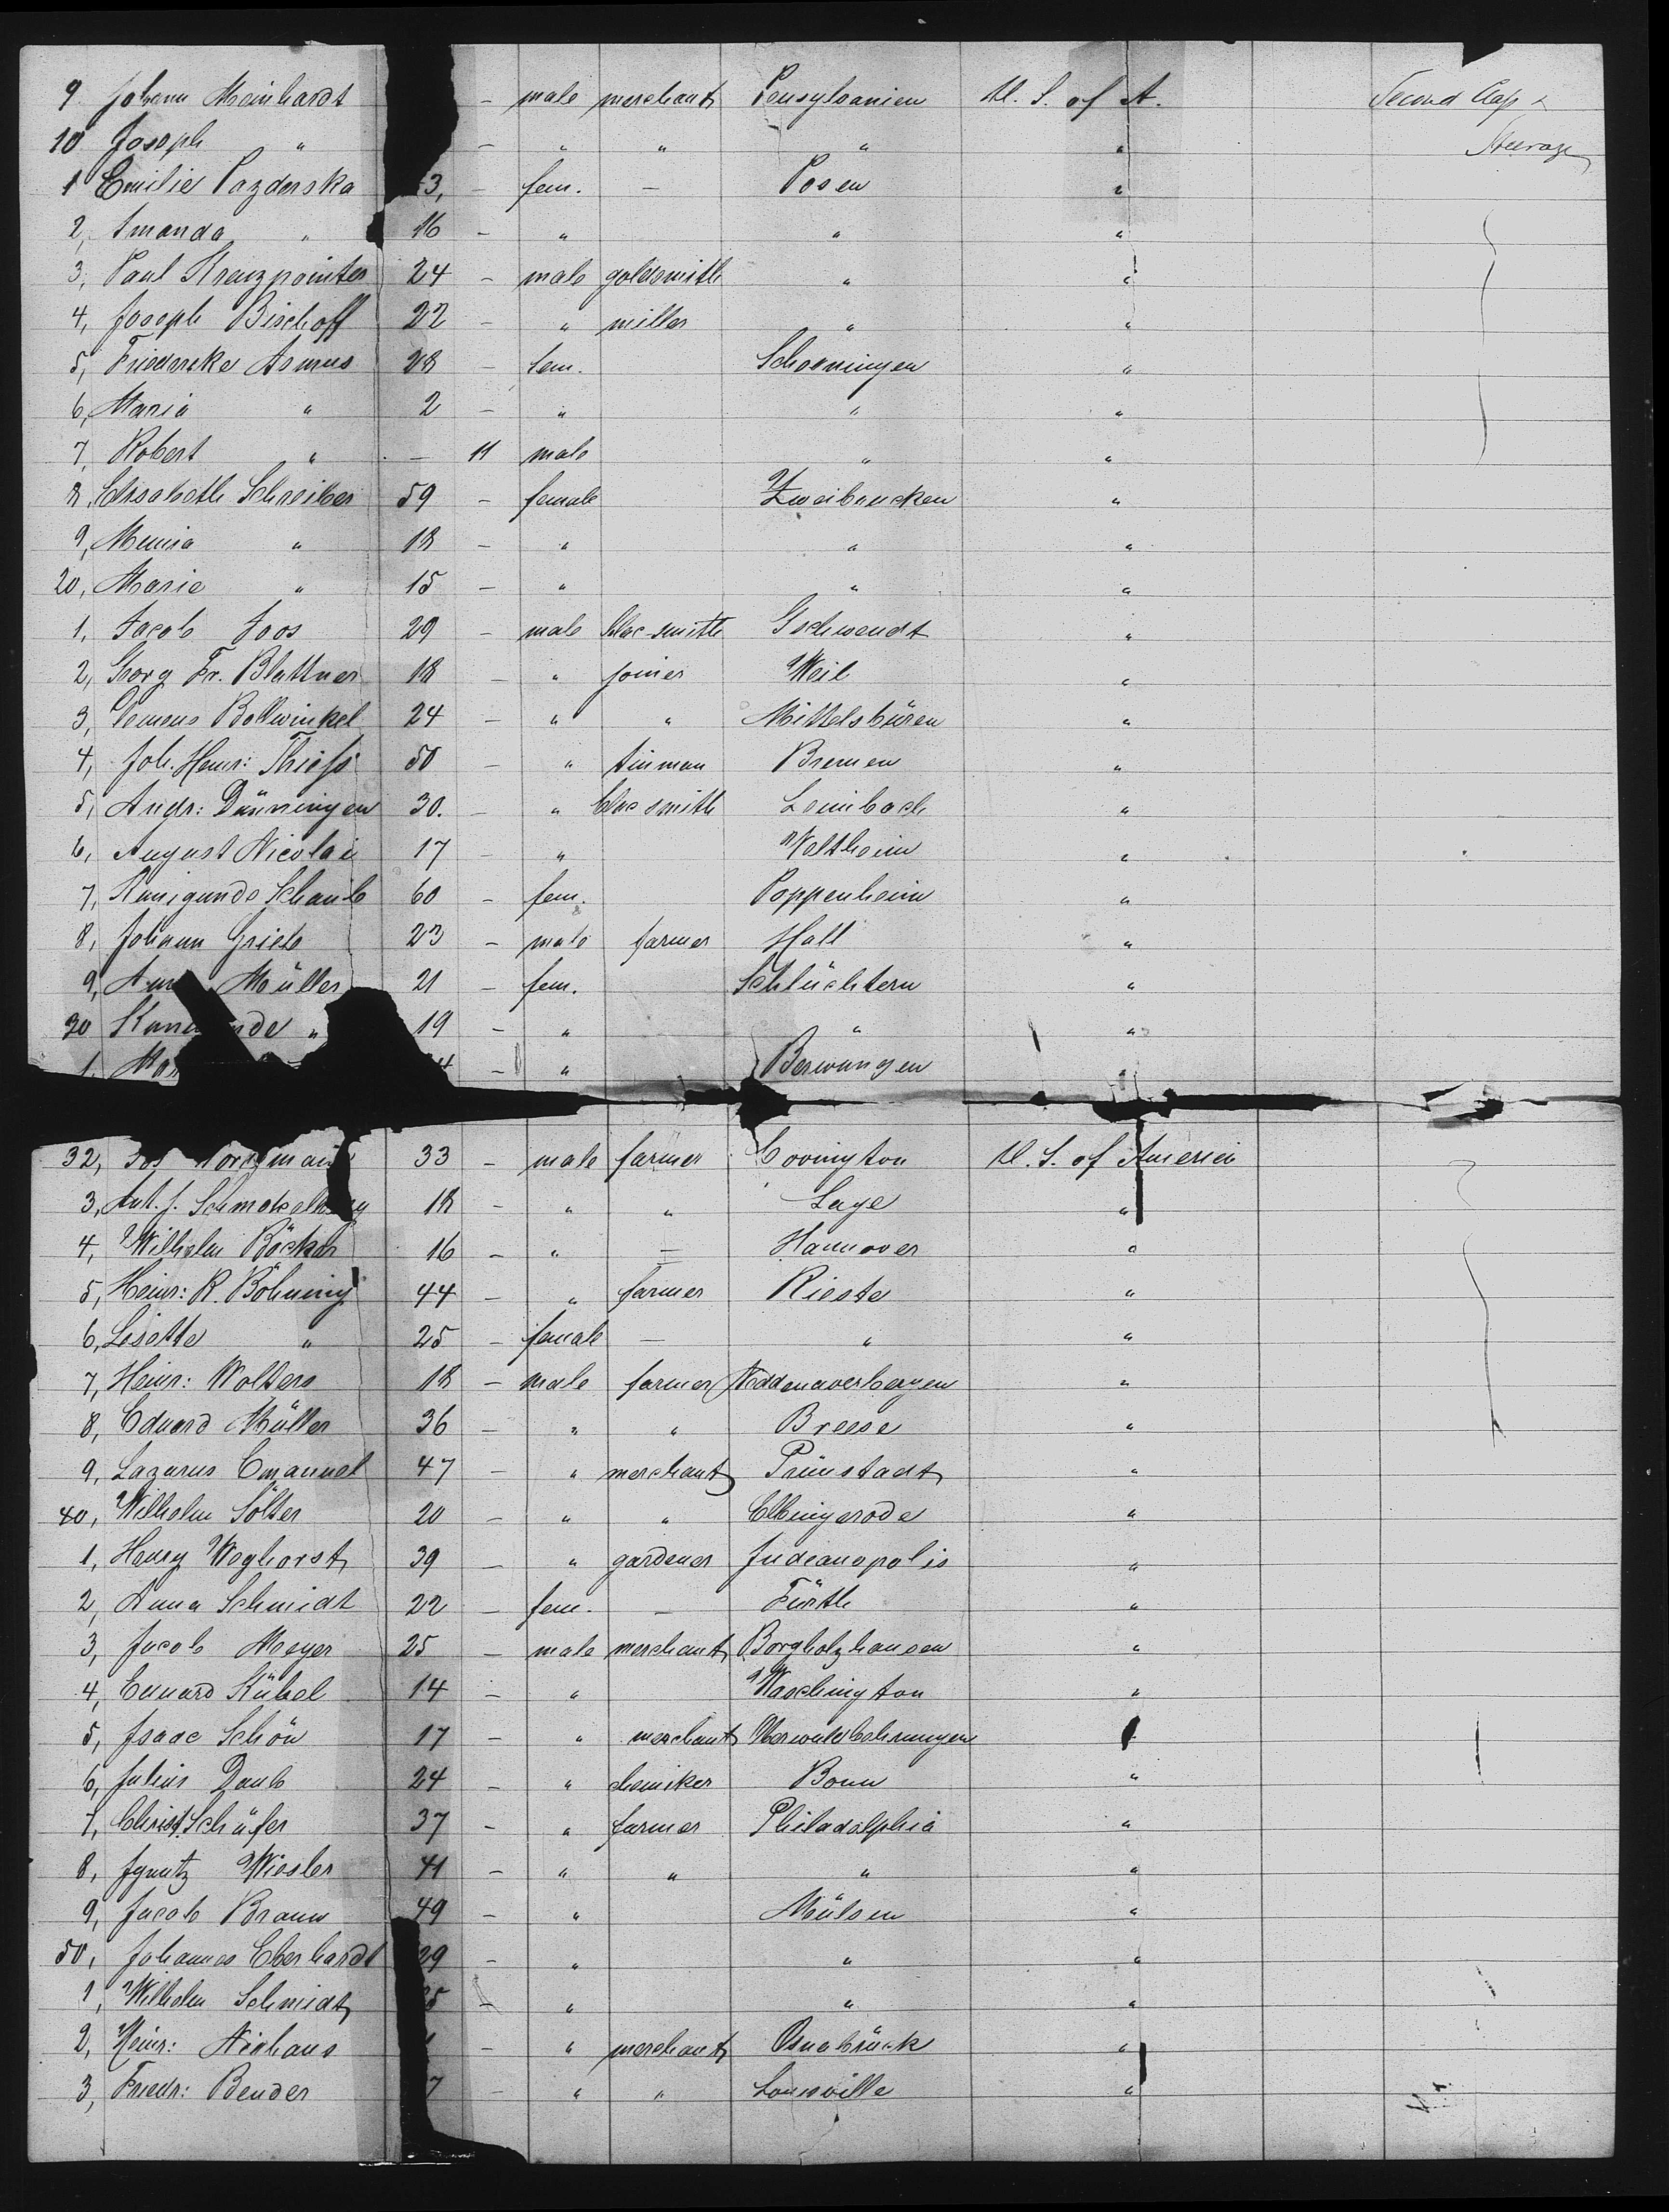 9 Johann Meinhardt - male merchant Pensylvanien U. S. of A. Second Class &
10 Joseph " - " " " " Steerage
1 Emilie Pazderska 3, - fem. - Posen "
2, Amanda " 16 - " " "
3, Paul Kreuzpointer 24 - male goldsmith " "
4, Joseph Bischoff 22 - " miller " "
5, Friedericke Asmus 28 - fem. Schoeningen "
6, Maria " 2 - " " "
7, Robert " - 11 male " "
8, Elisabeth Schreiber 59 - female Zweibrucken "
9, Minna " 18 - " " "
20, Marie " 15 - " " "
1, Jacob Joos 29 - male blac smith Gschwendt "
2, Georg Fr. Blattner 18 - " joiner Weil "
3, Clemens Bollwinkel 24 - " " Mittelsbüren "
4, Joh. Heinr: Thiess 50 - " tinman Bremen "
5, Andr: Dünningen 30. - " blac smith Leimbach "
6, August Nicolai 17 - " Veltheim "
7, Kunigunde Schaub 60 - fem. Poppenheim "
8, Johann Grieb 23 - male farmer Hall "
9, Müller 21 - fem. Schlüchtern "
30 " 19 - " " "
1, - " Berwangen "
32, 33 - male farmer Covington U. S. of America
3, Ant. J. 18 - " " Laye "
4, Wilhelm Böcker 16 - " - Hannover "
5, Heinr: R. Böhning 44 - " farmer Rieste "
6, Lisette " 25 - female - " "
7, Heinr: Wolters 18 - male farmer Neddenaverbergen "
8, Eduard Müller 36 - " " Breese "
9, Lazarus Emanuel 47 - " merchant Prünstadt "
40, Wilhelm Sölter 20 - " " Elbingerode "
1, Henry Weghorst 39 - " gardener Indeanopolis "
2, Anna Schmidt 22 - fem. - Fürth "
3, Jacob Meyer 25 - male merchant Borgholzhausen "
4, Eduard Kübel 14 - " Waschington "
5, Isaac Schön 17 - " merchant
6, Julius Daub 24 - " chemiker Bonn "
7, Christ. Schäfer 37 - " farmer Philadelphia "
8, Ignatz Wiesler 41 - " " " "
9, Jacob Braun 49 - " Mülsen "
50, Johannes Eberhardt 29 - " " "
1, Wilhelm Schmidt 5 - " " "
2, Heinr: Niehaus - " merchant Osnabrück "
3, Friedr: Bender 7 - " " Louisville "